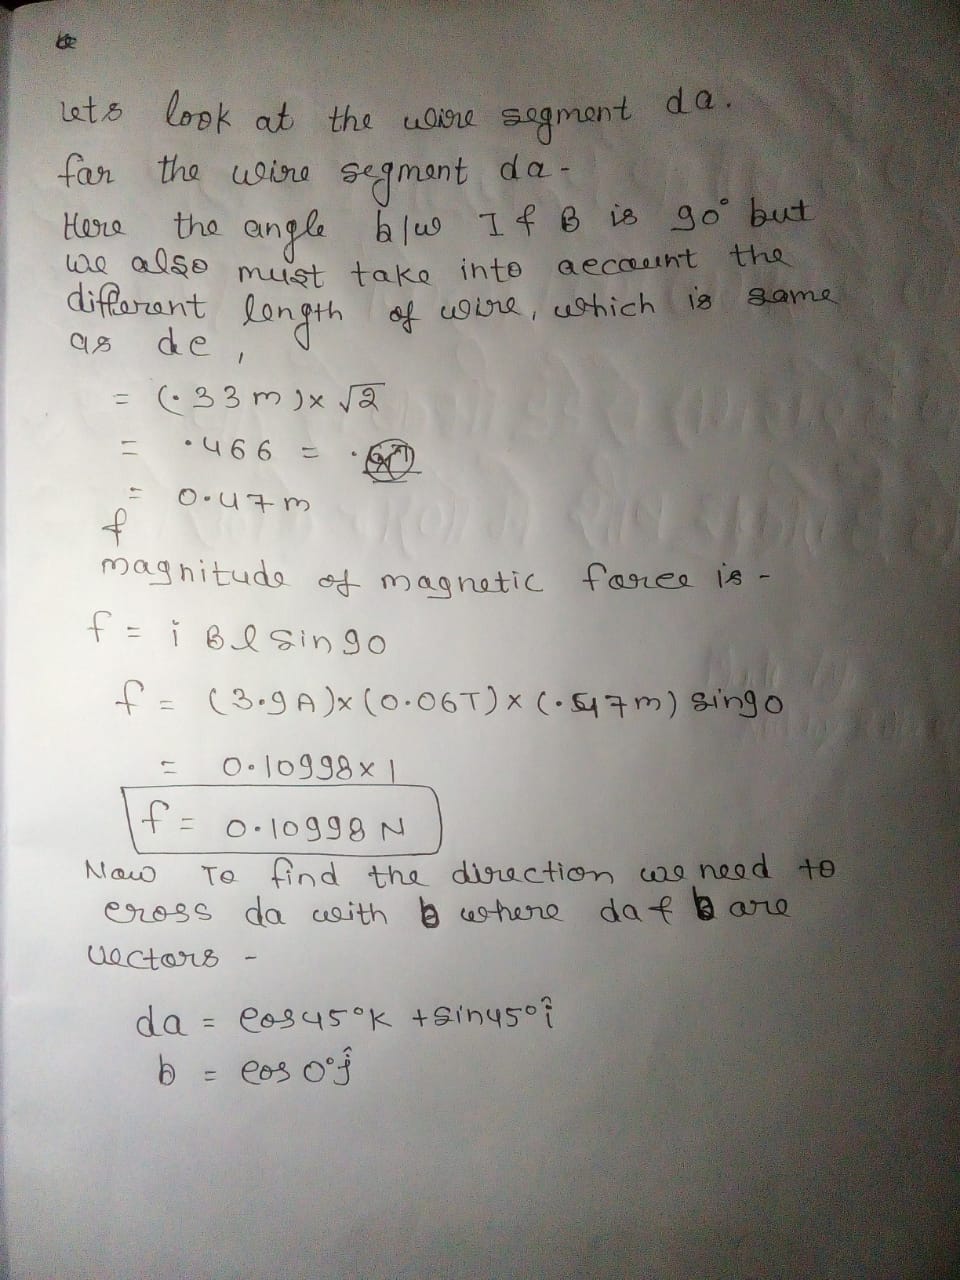 Lets look at the wire segment da.
for the wire segment da -
Here the angle b/w I & B is 90° but
we also must take into account the
different length of wire, which is same
as de,
= (.33m)x √2
= .466 = .
= 0.47m
f
magnitude of magnetic force is -
f = i Bl sin90
f = (3.9A)x(0.06T)x(.47m) sin90
= 0.10998x1
f = 0.10998 N
Now To find the direction we need to
cross da with b where da & b are
vectors -
da = cos45°k + sin45°î
b = cos0°ĵ